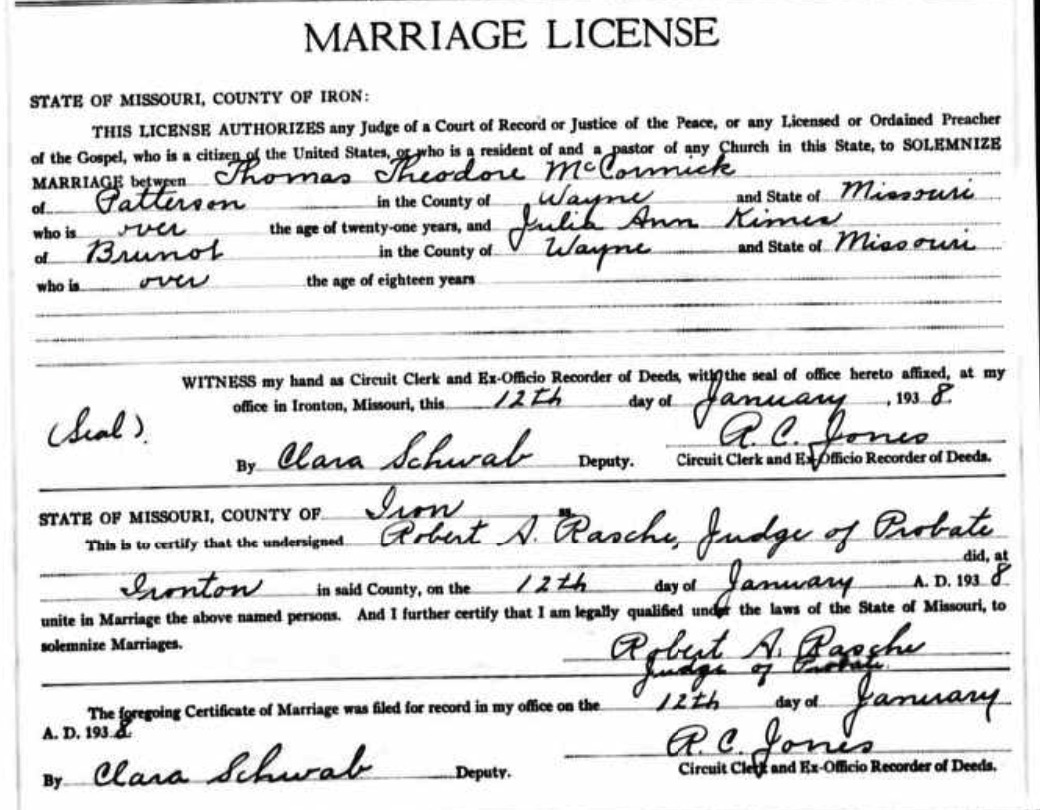 MARRIAGE LICENSE
STATE OF MISSOURI, COUNTY OF IRON:
THIS LICENSE AUTHORIZES any Judge of a Court of Record or Justice of the Peace, or any Licensed or Ordained Preacher
of the Gospel, who is a citizen of the United States, or who is a resident of and a pastor of any Church in this State, to SOLEMNIZE
MARRIAGE between Thomas Theodore McCormick
of Patterson in the County of Wayne and State of Missouri
who is over the age of twenty-one years, and Julia Ann Kimes
of Brunot in the County of Wayne and State of Missouri
who is over the age of eighteen years
WITNESS my hand as Circuit Clerk and Ex-Officio Recorder of Deeds, with the seal of office hereto affixed, at my
office in Ironton, Missouri, this 12th day of January, 1938.
(Seal).
R. C. Jones
By Clara Schwab Deputy. Circuit Clerk and Ex-Officio Recorder of Deeds.
STATE OF MISSOURI, COUNTY OF Iron
This is to certify that the undersigned Robert A. Rasche, Judge of Probate
did, at
Ironton in said County, on the 12th day of January A. D. 1938
unite in Marriage the above named persons. And I further certify that I am legally qualified under the laws of the State of Missouri, to
solemnize Marriages.
Robert A. Rasche
Judge of Probate
The foregoing Certificate of Marriage was filed for record in my office on the 12th day of January
A. D. 1938.
R. C. Jones
By Clara Schwab Deputy. Circuit Clerk and Ex-Officio Recorder of Deeds.